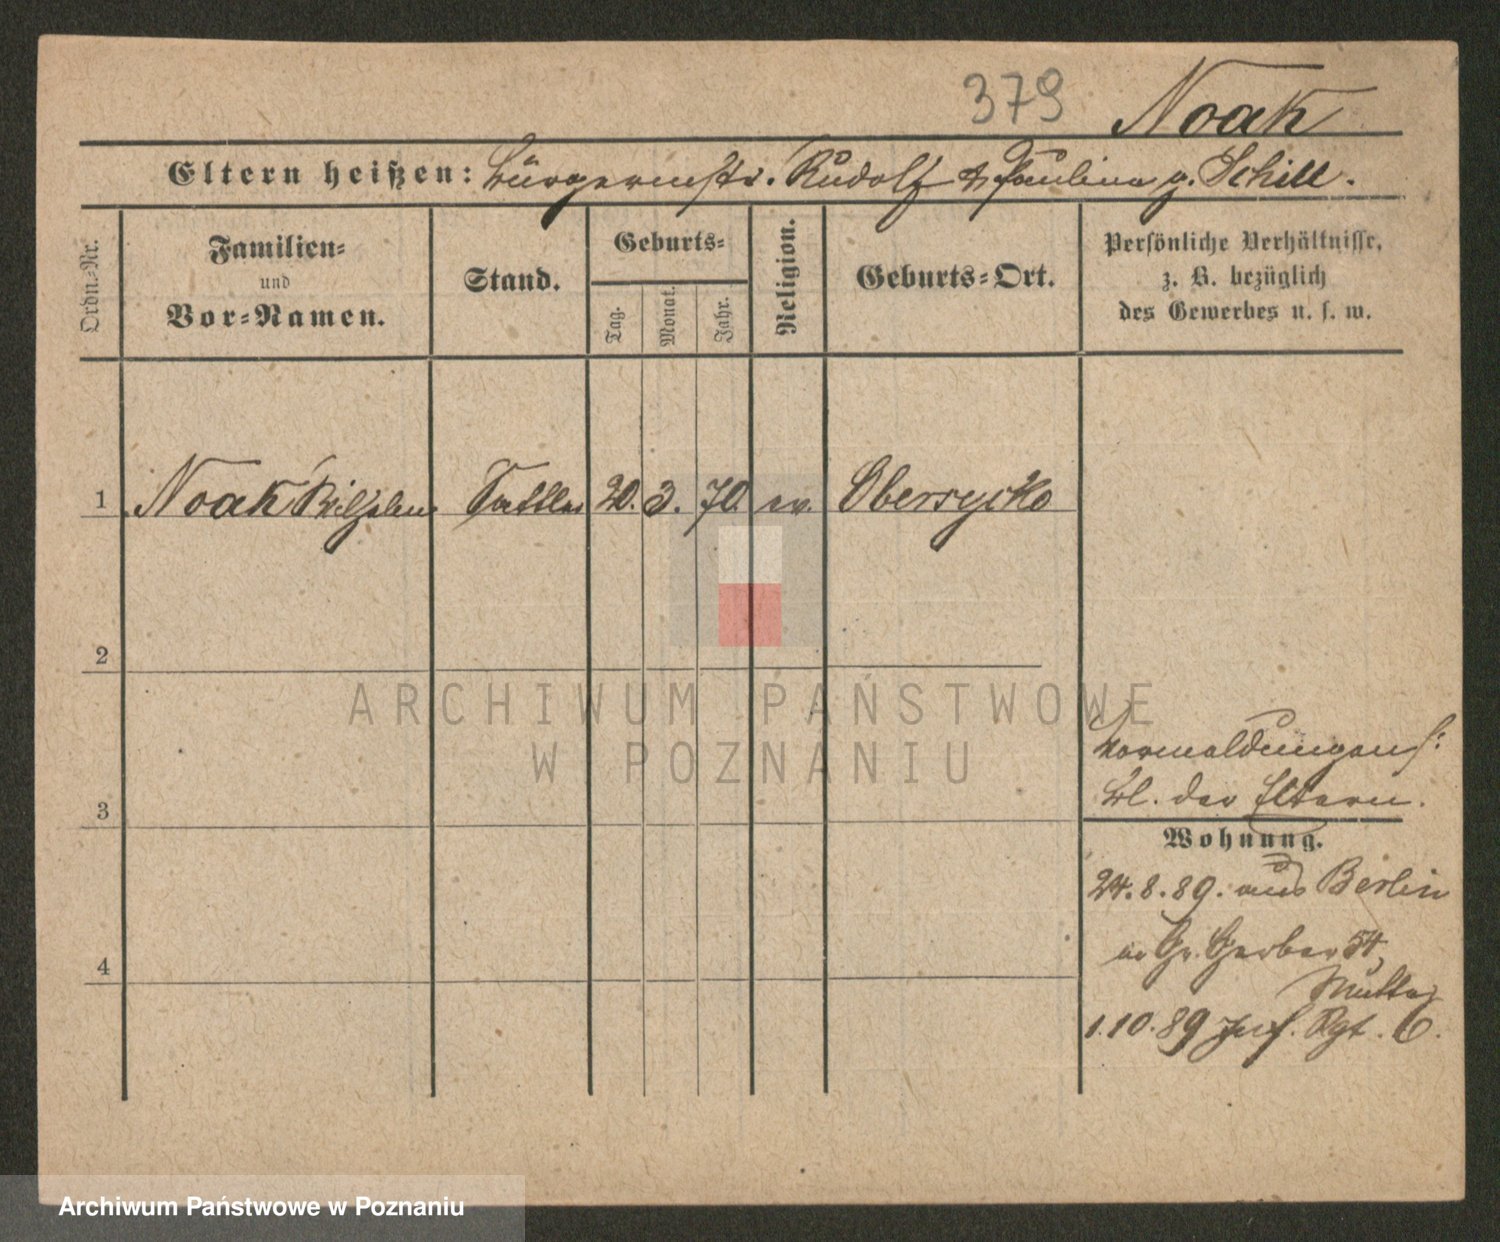 379 Noak
Eltern heißen: Bürgermstr. Rudolf & Paulina g. Schill.
Ordn.-Nr.
Familien-
und
Vor-Namen.
Stand.
Geburts-
Tag.
Monat.
Jahr.
Religion.
Geburts-Ort.
Persönliche Verhältnisse,
z. B. bezüglich
des Gewerbes u. s. w.
1 Noak Wilhelm Sattler 20. 3. 70. ev. Obersycko
2
3
4
Vormeldungen s:
Bl. der Eltern.
Wohnung.
24.8.89. aus Berlin
Gr. Gerber 54,
Mutter
1.10.89 Inf. Rgt. 6.
ARCHIWUM PAŃSTWOWE
W POZNANIU
Archiwum Państwowe w Poznaniu